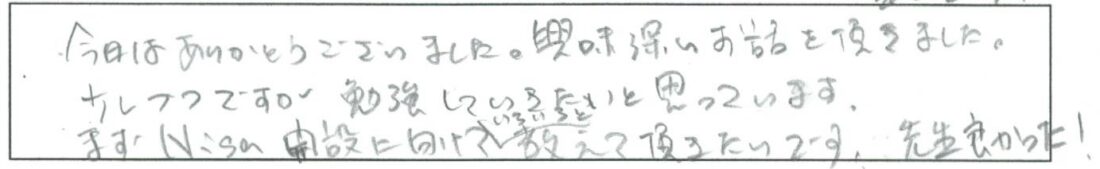 今日はありがとうございました。興味深いお話を頂きました。
少しづつですが勉強していきたいと思っています。
まずNisa開設に向けていろいろと教えて頂きたいです。先生良かった!